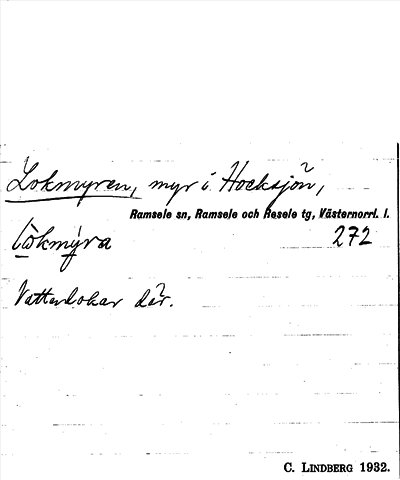 Lokmyren, myr i Hocksjön,
Ramsele sn, Ramsele och Resele tg, Västernorrl. l.
lòkmýra 272
Vattenlokar där.
C. LINDBERG 1932.